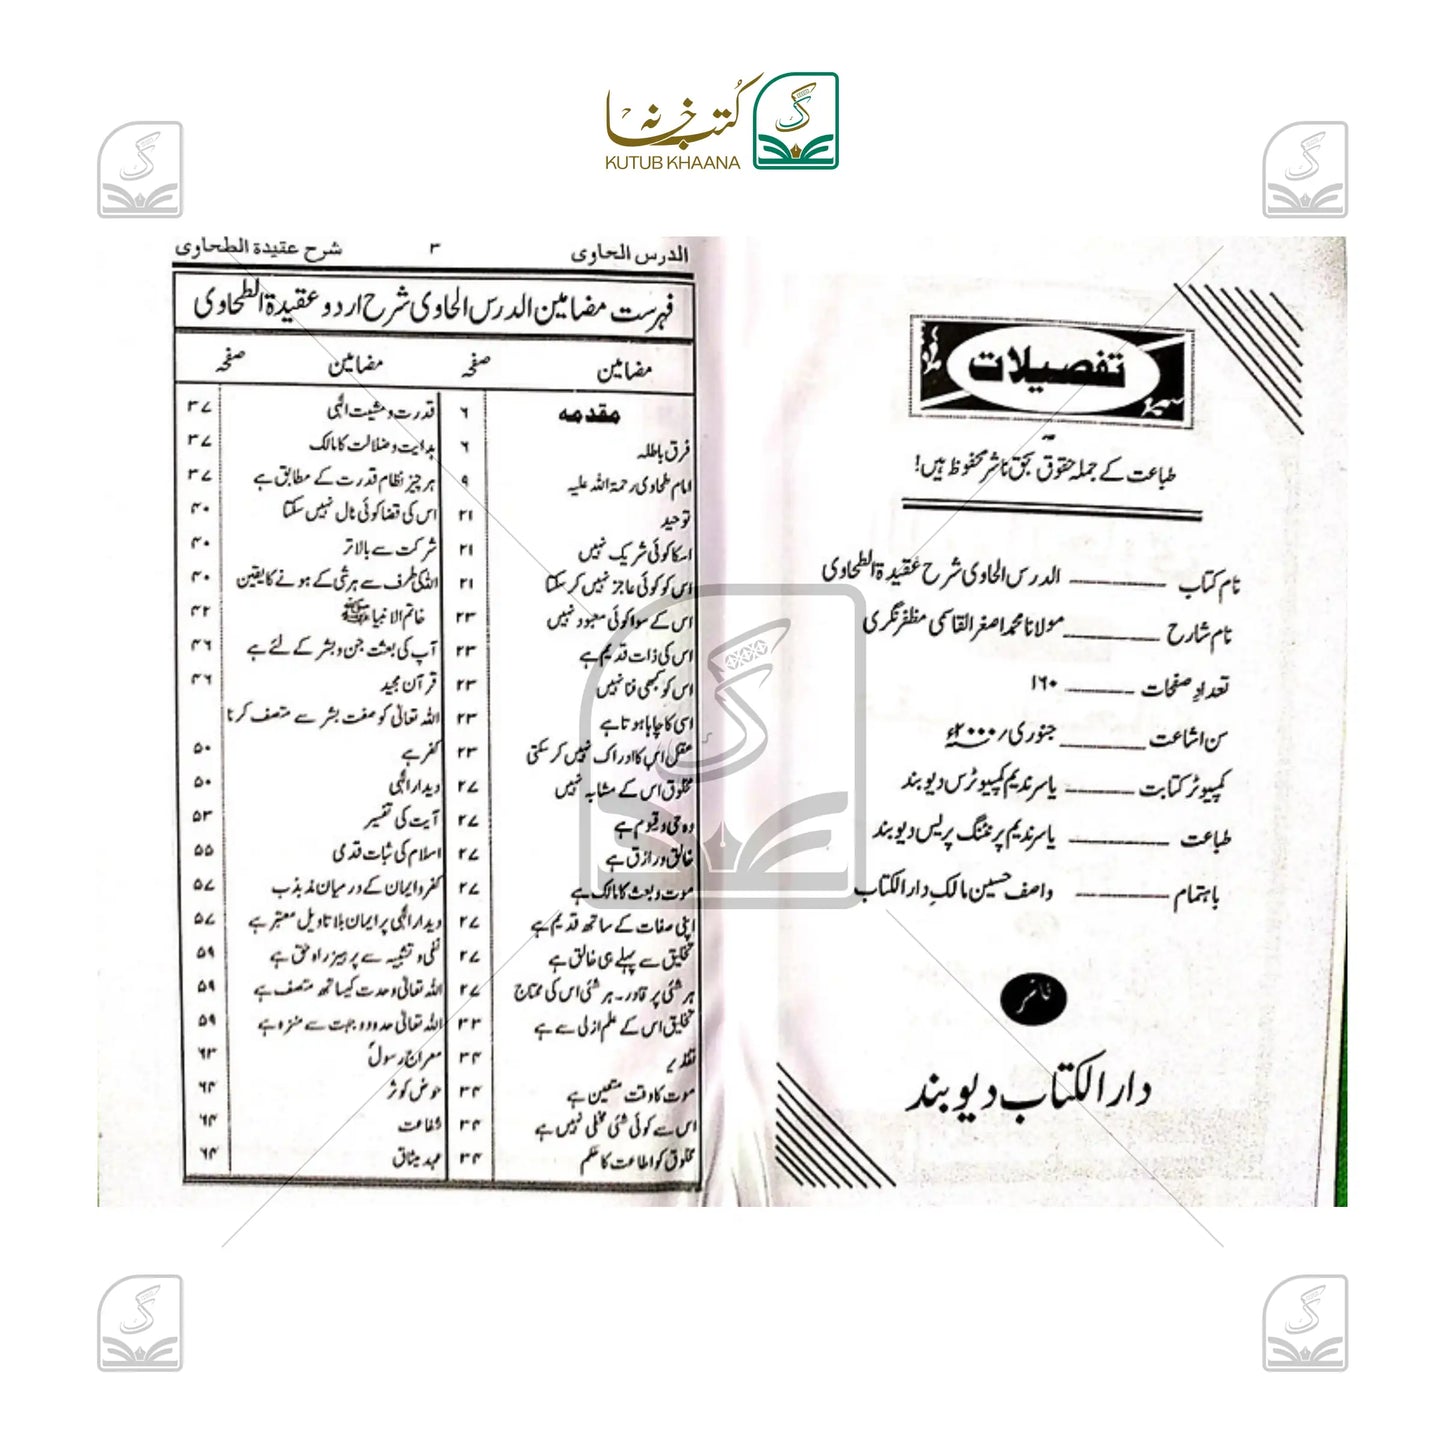 کتب خانہ
KUTUB KHAANA
تفصیلات
طباعت کے جملہ حقوق بحق ناشر محفوظ ہیں!
نام کتاب ــــــ الدرس الحاوی شرح عقیدۃ الطحاوی
نام شارح ــــــ مولانا محمد اصغر القاسمی مظفر نگری
تعداد صفحات ــــــ ۱۶۰
سن اشاعت ــــــ جنوری ۲۰۰۰ء
کمپیوٹر کتابت ــــــ یاسر ندیم کمپیوٹرس دیوبند
طباعت ــــــ یاسر ندیم پرنٹنگ پریس دیوبند
باہتمام ــــــ واصف حسین مالک دار الکتاب
ناشر
دار الکتاب دیوبند
الدرس الحاوی ۳ شرح عقیدة الطحاوی
فہرست مضامین الدرس الحاوی شرح اردو عقیدۃ الطحاوی
مضامین صفحہ مضامین صفحہ
مقدمہ ۶
فرق باطلہ ۶
امام طحاوی رحمۃ اللہ علیہ ۹
توحید ۲۱
اسکا کوئی شریک نہیں ۲۱
اس کو کوئی عاجز نہیں کر سکتا ۲۱
اس کے سوا کوئی معبود نہیں ۲۳
اس کی ذات قدیم ہے ۲۳
اس کو کبھی فنا نہیں ۲۳
اسی کا چاہا ہوتا ہے ۲۳
عقل اس کا ادراک نہیں کر سکتی ۲۳
مخلوق اس کے مشابہ نہیں ۲۷
وہ حی و قیوم ہے ۲۷
خالق و رازق ہے ۲۷
موت و بعث کا مالک ہے ۲۷
اپنی صفات کے ساتھ قدیم ہے ۲۷
تخلیق سے پہلے ہی خالق ہے ۲۷
ہر شئی پر قادر۔ ہر شئی اس کی محتاج ۲۷
تخلیق اس کے علم ازلی سے ہے ۳۳
تقدیر ۳۴
موت کا وقت متعین ہے ۳۴
اس سے کوئی شئی مخفی نہیں ہے ۳۴
مخلوق کو اطاعت کا حکم ۳۴
قدرت و مشیت الٰہی ۳۷
ہدایت و ضلالت کا مالک ۳۷
ہر چیز نظام قدرت کے مطابق ہے ۳۷
اس کی قضا کوئی ٹال نہیں سکتا ۴۰
شرکت سے بالاتر ۴۰
اللہ کی طرف سے ہر شئی کے ہونے کا یقین ۴۰
خاتم الانبیاء ﷺ ۴۲
آپ کی بعثت جن و بشر کے لئے ہے ۴۶
قرآن مجید ۴۶
اللہ تعالیٰ کو صفت بشر سے متصف کرنا
کفر ہے ۵۰
دیدار الٰہی ۵۰
آیت کی تفسیر ۵۳
اسلام کی ثبات قدمی ۵۵
کفر و ایمان کے درمیان مذبذب ۵۷
دیدار الٰہی پر ایمان بلا تاویل معتبر ہے ۵۷
نفی و تشبیہ سے پرہیز راہ حق ہے ۵۹
اللہ تعالیٰ وحدت کیساتھ متصف ہے ۵۹
اللہ تعالیٰ حدود و جہت سے منزہ ہے ۵۹
معراج رسولؐ ۶۳
حوض کوثر ۶۴
شفاعت ۶۴
عہد میثاق ۶۴